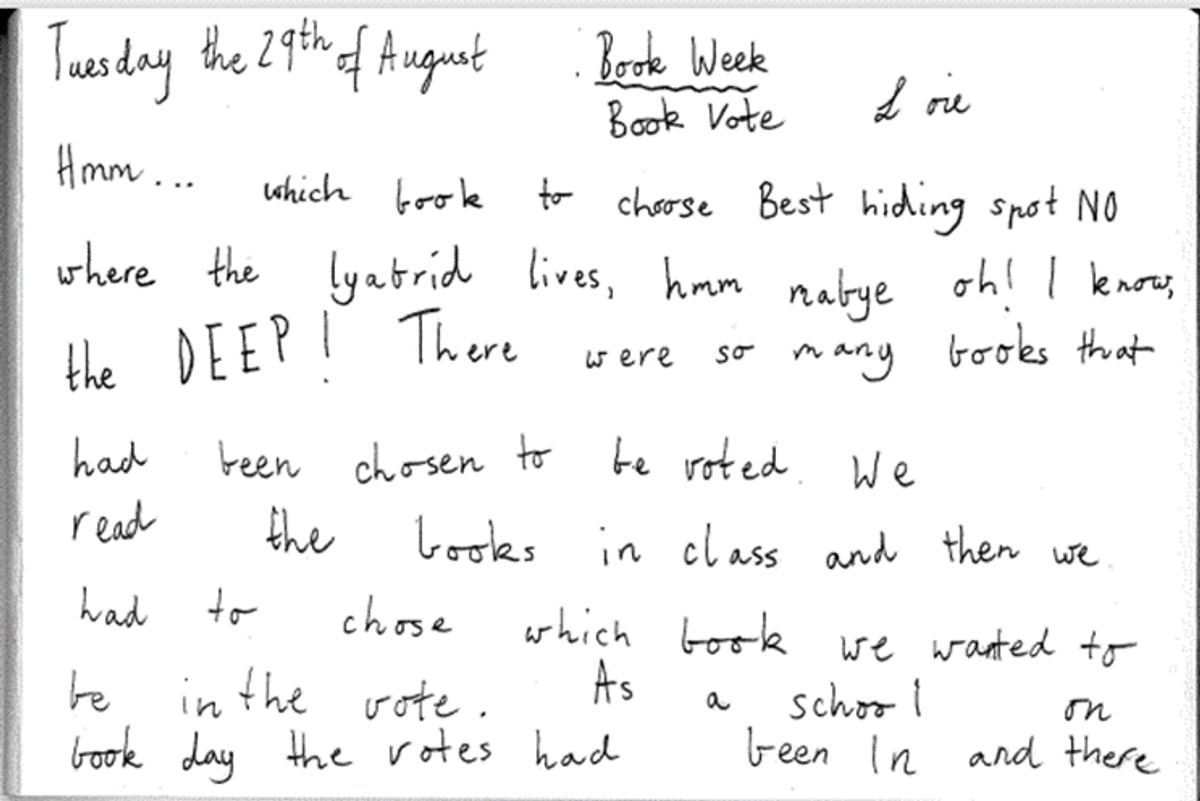 Tuesday the 29th of August Book Week
Book Vote
Hmm... which book to choose Best hiding spot NO
where the lyabrid lives, hmm mabye oh! I know,
the DEEP! There were so many books that
had been chosen to be voted. We
read the books in class and then we
had to chose which book we wanted to
be in the vote. As a school on
book day the votes had been In and there